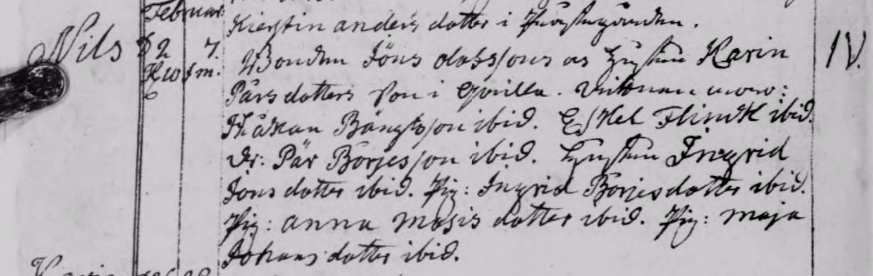 Februar:
Kierstin anders dotter i
Nils d 2 7. Bonden Jöns olassons och hustru Karin IV.
m. Pärs dotters son i
Håkan Bängtsson ibid. Eskel Flinck ibid.
Dr: Pär Börjesson ibid. hustru Ingrid
Jöns dotter ibid. Pig: Ingrid Börjesdotter ibid.
Pig: anna Mosis dotter ibid. Pig: maja
Johans dotter ibid.